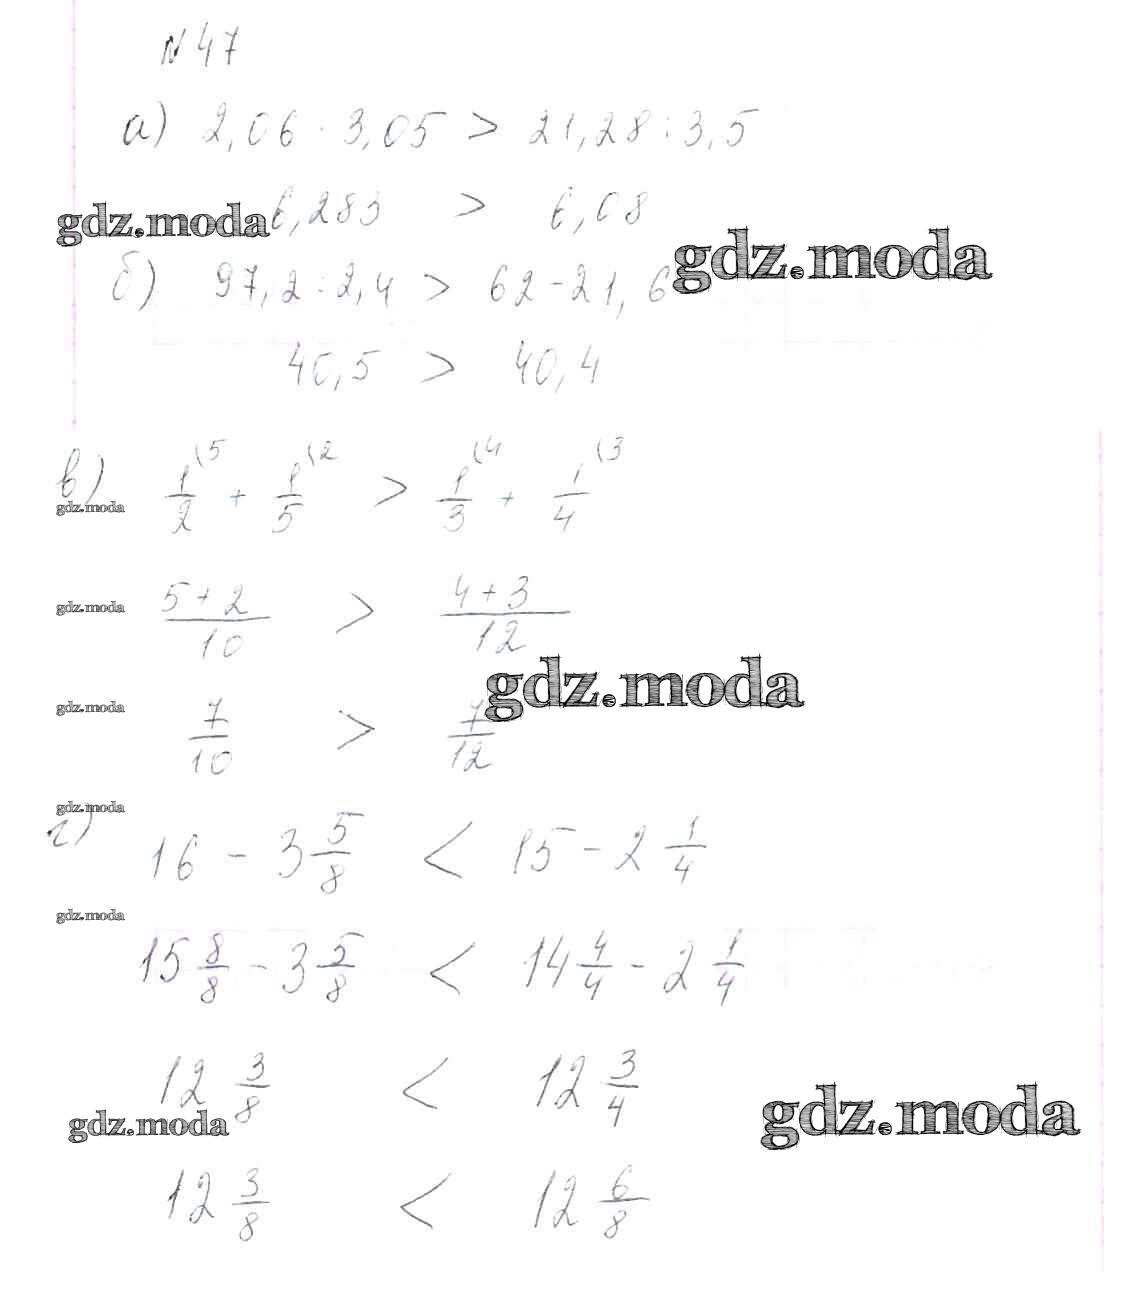 N 47
а) 2,06 · 3,05 > 21,28 : 3,5
gdz.moda 6,283 > 6,08
gdz.moda
б) 97,2 : 2,4 > 62 - 21,6
40,5 > 40,4
в) 1/2 (5 + 1/5 (2 > 1/3 (4 + 1/4 (3
gdz.moda
gdz.moda 5+2/10 > 4+3/12
gdz.moda
gdz.moda 7/10 > 7/12
gdz.moda
г) 16 - 3 5/8 < 15 - 2 1/4
gdz.moda
15 8/8 - 3 5/8 < 14 4/4 - 2 1/4
12 3/8 < 12 3/4
gdz.moda gdz.moda
12 3/8 < 12 6/8